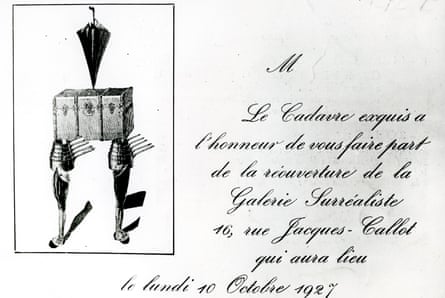 M
Le Cadavre exquis a
l'honneur de vous faire part
de la réouverture de la
Galerie Surréaliste
16, rue Jacques-Callot
qui aura lieu
le lundi 10 Octobre 1927